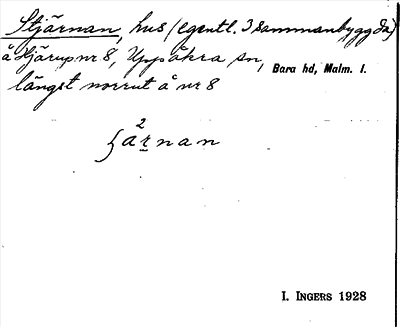 Stjärnan, hus (egentl. 3 sammanbyggda)
å Hjärup nr 8, Uppåkra sn, Bara hd, Malm. l.
längst norrut å nr 8
2
ʃärnan
I. INGERS 1928